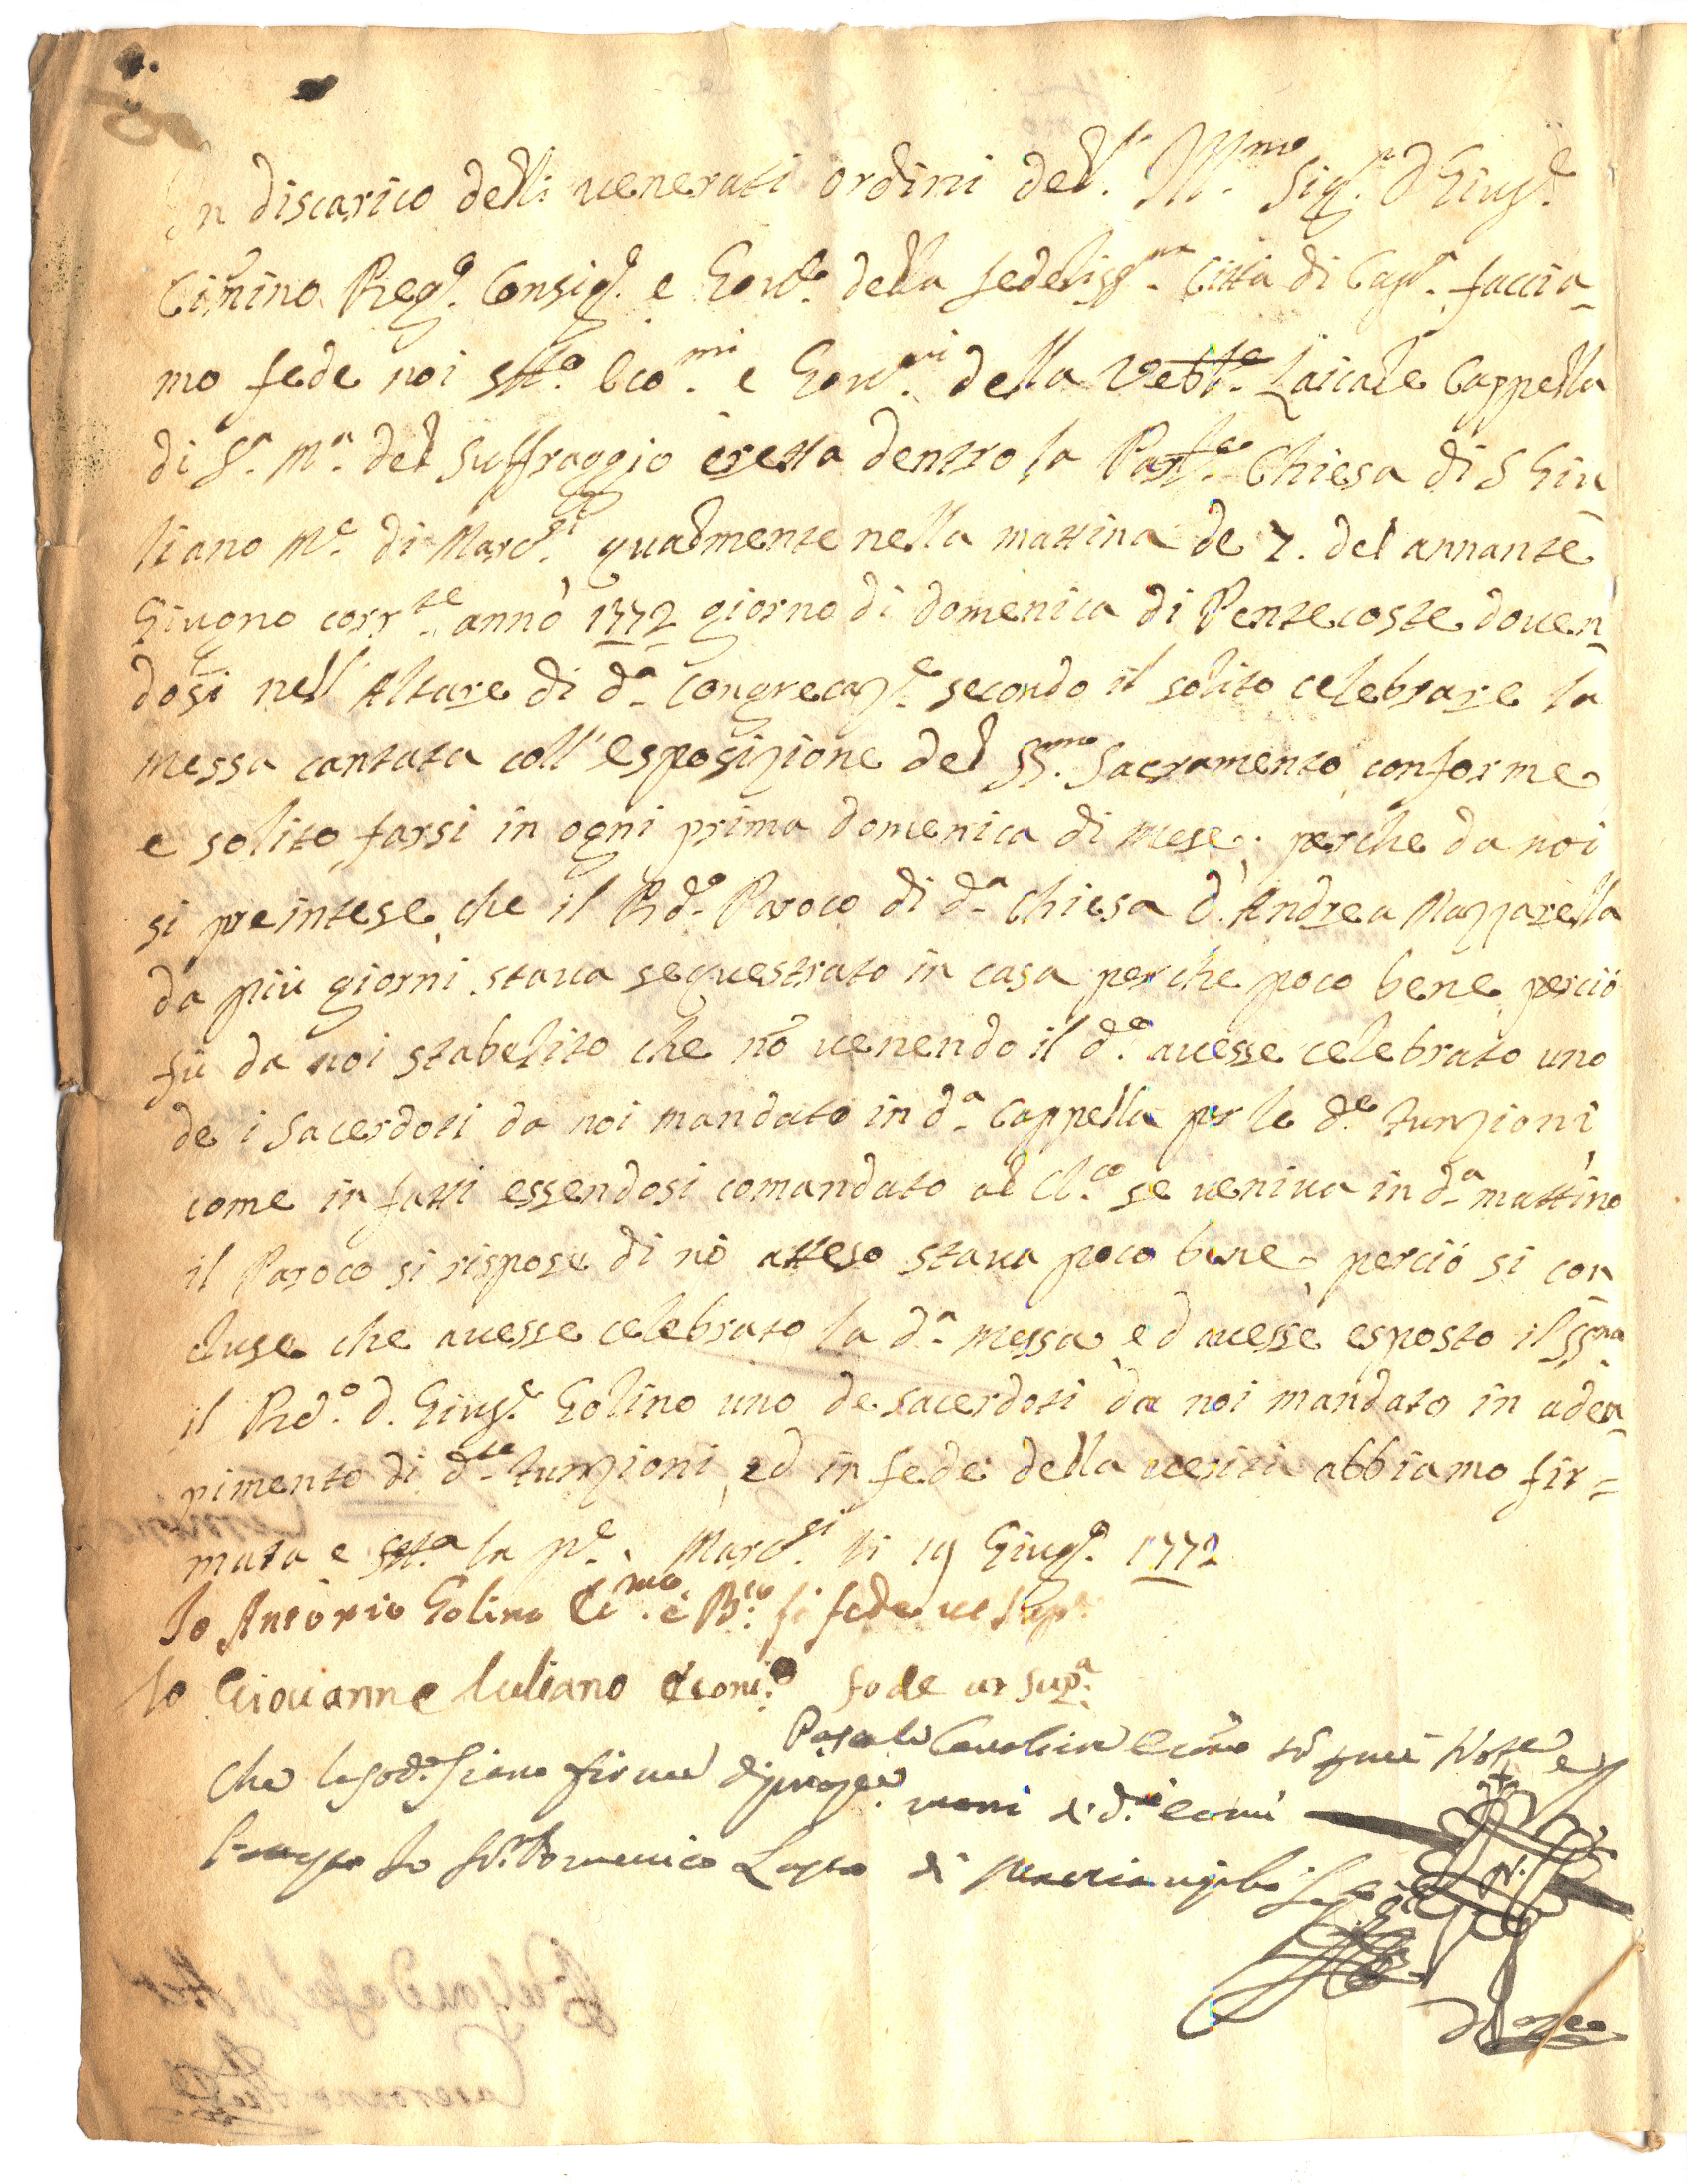 In discarico delli venerati ordini dell' Ill.mo Sig.r D Giusp.e
Cimino Reg.o Consig.o e Gov.e della fedeliss.ma Città di Cap.a faccia-
mo fede noi stt.o Eco.mi e Gov.ri della Veb.le Laicale Cappella
di S.a M.a del Suffraggio eretta dentro la Par.le Chiesa di S Giu
liano M.e di Marc.si qualmente nella mattina de 7. del annante
Giugno corr.te anno 1772 giorno di domenica di Pentecoste doven-
dosi nell' Altare di d.a Congregaz.e secondo il solito celebrare la
messa cantata coll' esposizione del SS.mo Sacramento conforme
e solito farsi in ogni prima domenica di mese; perche da noi
si preintese che il Rd.o Paroco di d.a Chiesa D. Andrea Mazzarella
da più giorni stava sequestrato in casa perche poco bene, perciò
fù da noi stabelito che nō venendo il d.o avesse celebrato uno
de i Sacerdoti da noi mandato in d.a Cappella per le d.e funzioni,
come in fatti essendosi comandato al Cl.co se veniva in d.a mattina
il Paroco si rispose di nò atteso stava poco bene, perciò si con
cluse che avesse celebrato la d.a messa, ed avesse esposto il SS.mo
il Rd.o d. Giusp.e Golino uno de sacerdoti da noi mandato in adem-
pimento di d.te funzioni, ed in fede della verità abbiamo fir=
mata e stt.a la p.te Marc.si li 19 Giug.o 1772
Io Antonio Golino Eco.mo e fò fede ut sup.a
Io Giovanne Iuliano Econ.o fo de ut sup.a
Pascale Cavaliere
Che le sod.e siano firme di proprie mani di d.i
Io N.r Domenico di
N.